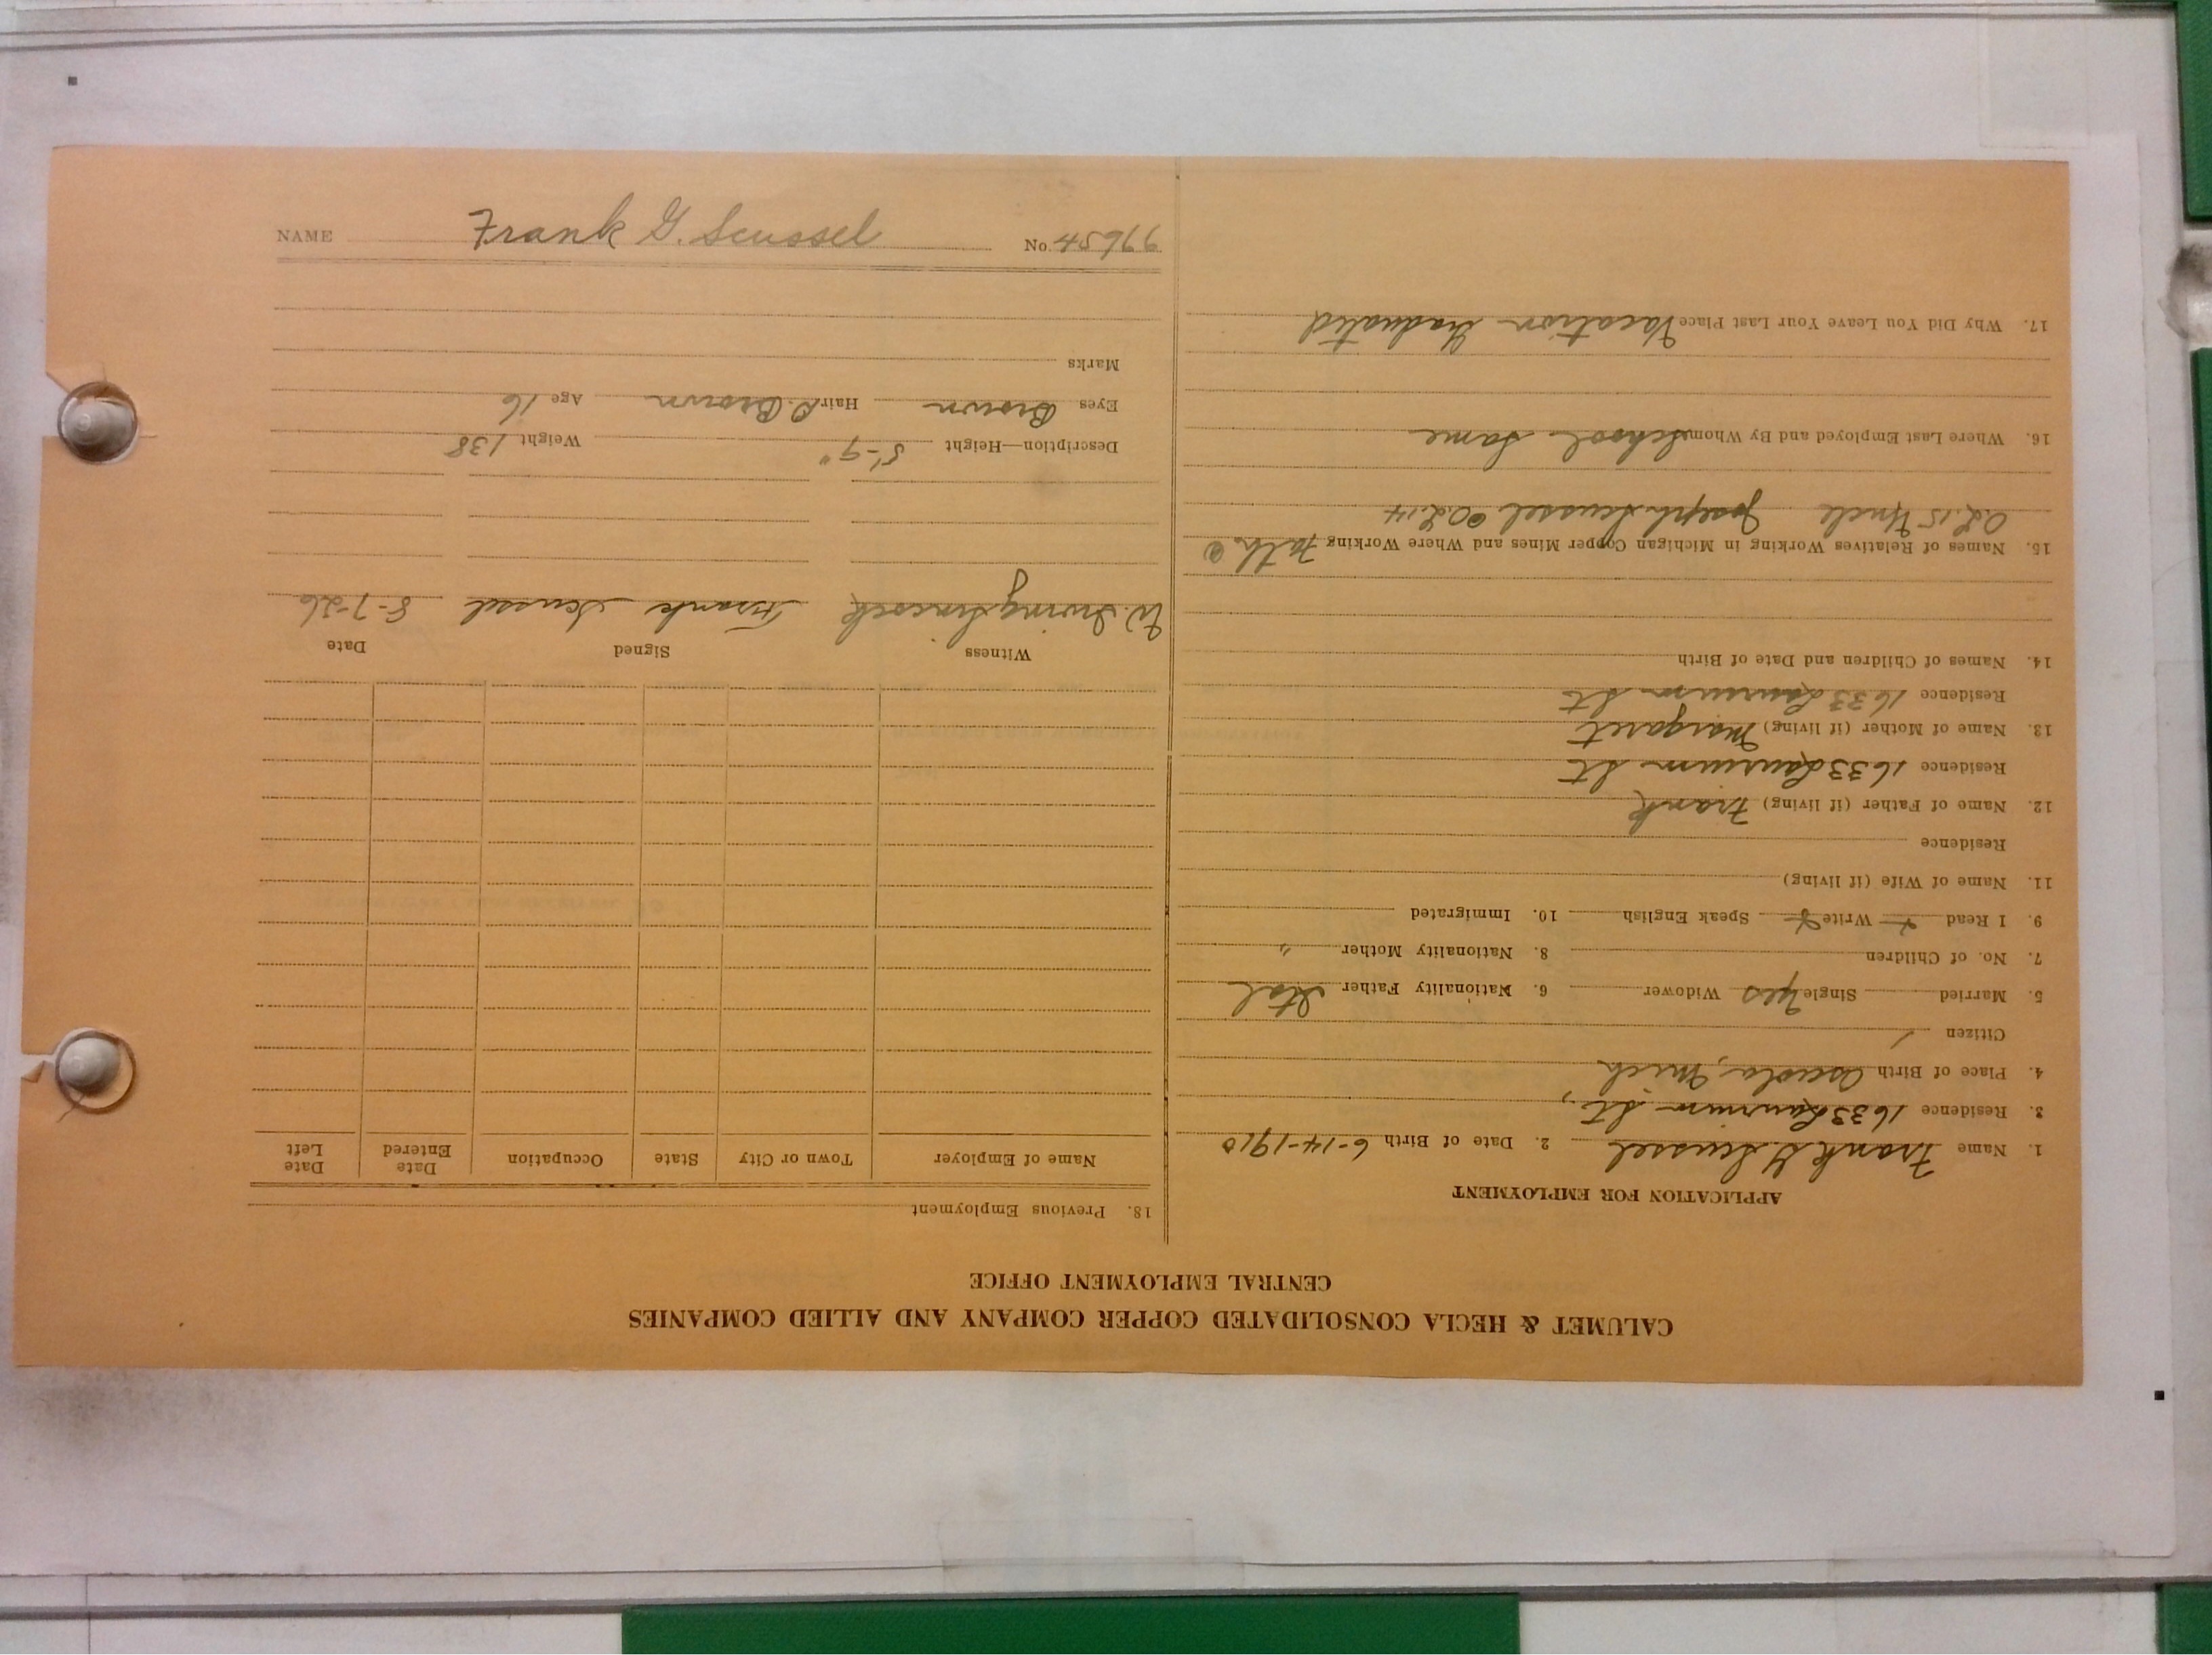 CALUMET & HECLA CONSOLIDATED COPPER COMPANY AND ALLIED COMPANIES
CENTRAL EMPLOYMENT OFFICE
APPLICATION FOR EMPLOYMENT
1. Name Frank G. Scussel 2. Date of Birth 6-14-1910
3. Residence 1633 Laurium St,
4. Place of Birth Osceola, Mich
Citizen
5. Married Single yes Widower 6. Nationality Father Ital
7. No. of Children 8. Nationality Mother "
9. I Read Write Speak English 10. Immigrated
11. Name of Wife (if living)
Residence
12. Name of Father (if living) Frank
Residence 1633 Laurium St
13. Name of Mother (if living) Margaret
Residence 1633 Laurium St
14. Names of Children and Date of Birth
15. Names of Relatives Working in Michigan Copper Mines and Where Working Fath. @
O.L. 15 Uncle Joseph Scussel @ O.L. 14
16. Where Last Employed and By Whom School Same
17. Why Did You Leave Your Last Place Vacation Graduated
18. Previous Employment
Name of Employer Town or City State Occupation Date Entered Date Left
Witness Signed Date
W. Irving Frank Scussel 8-7-26
Description—Height 5'-9" Weight 138
Eyes Brown Hair D. Brown Age 16
Marks
NAME Frank G. Scussel No.